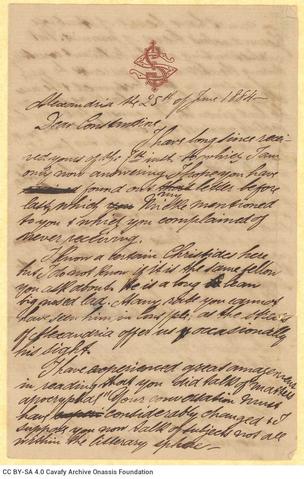 Alexandria the 25th of June 1884
Dear Constantine,
I have long since recei-
ved yours of the 7th inst to which I am
only now answering. I hope you have
found out letter before
last, which Mike mentioned
to you & which you complained of
never receiving.
I know a certain Christides here
but I do not know if it is the same fellow
you ask about. He is a long lean
lad. At any rate you cannot
have seen him in Const/ple, as the streets
of Alexandria offer us occasionally
his sight.
I have experienced great amazement
in reading that you "did talk of matters
apocryphal". Your conversation must
have considerably changed & I
suppose you now talk of subjects not all
within the literary sphere.
CC BY-SA 4.0 Cavafy Archive Onassis Foundation